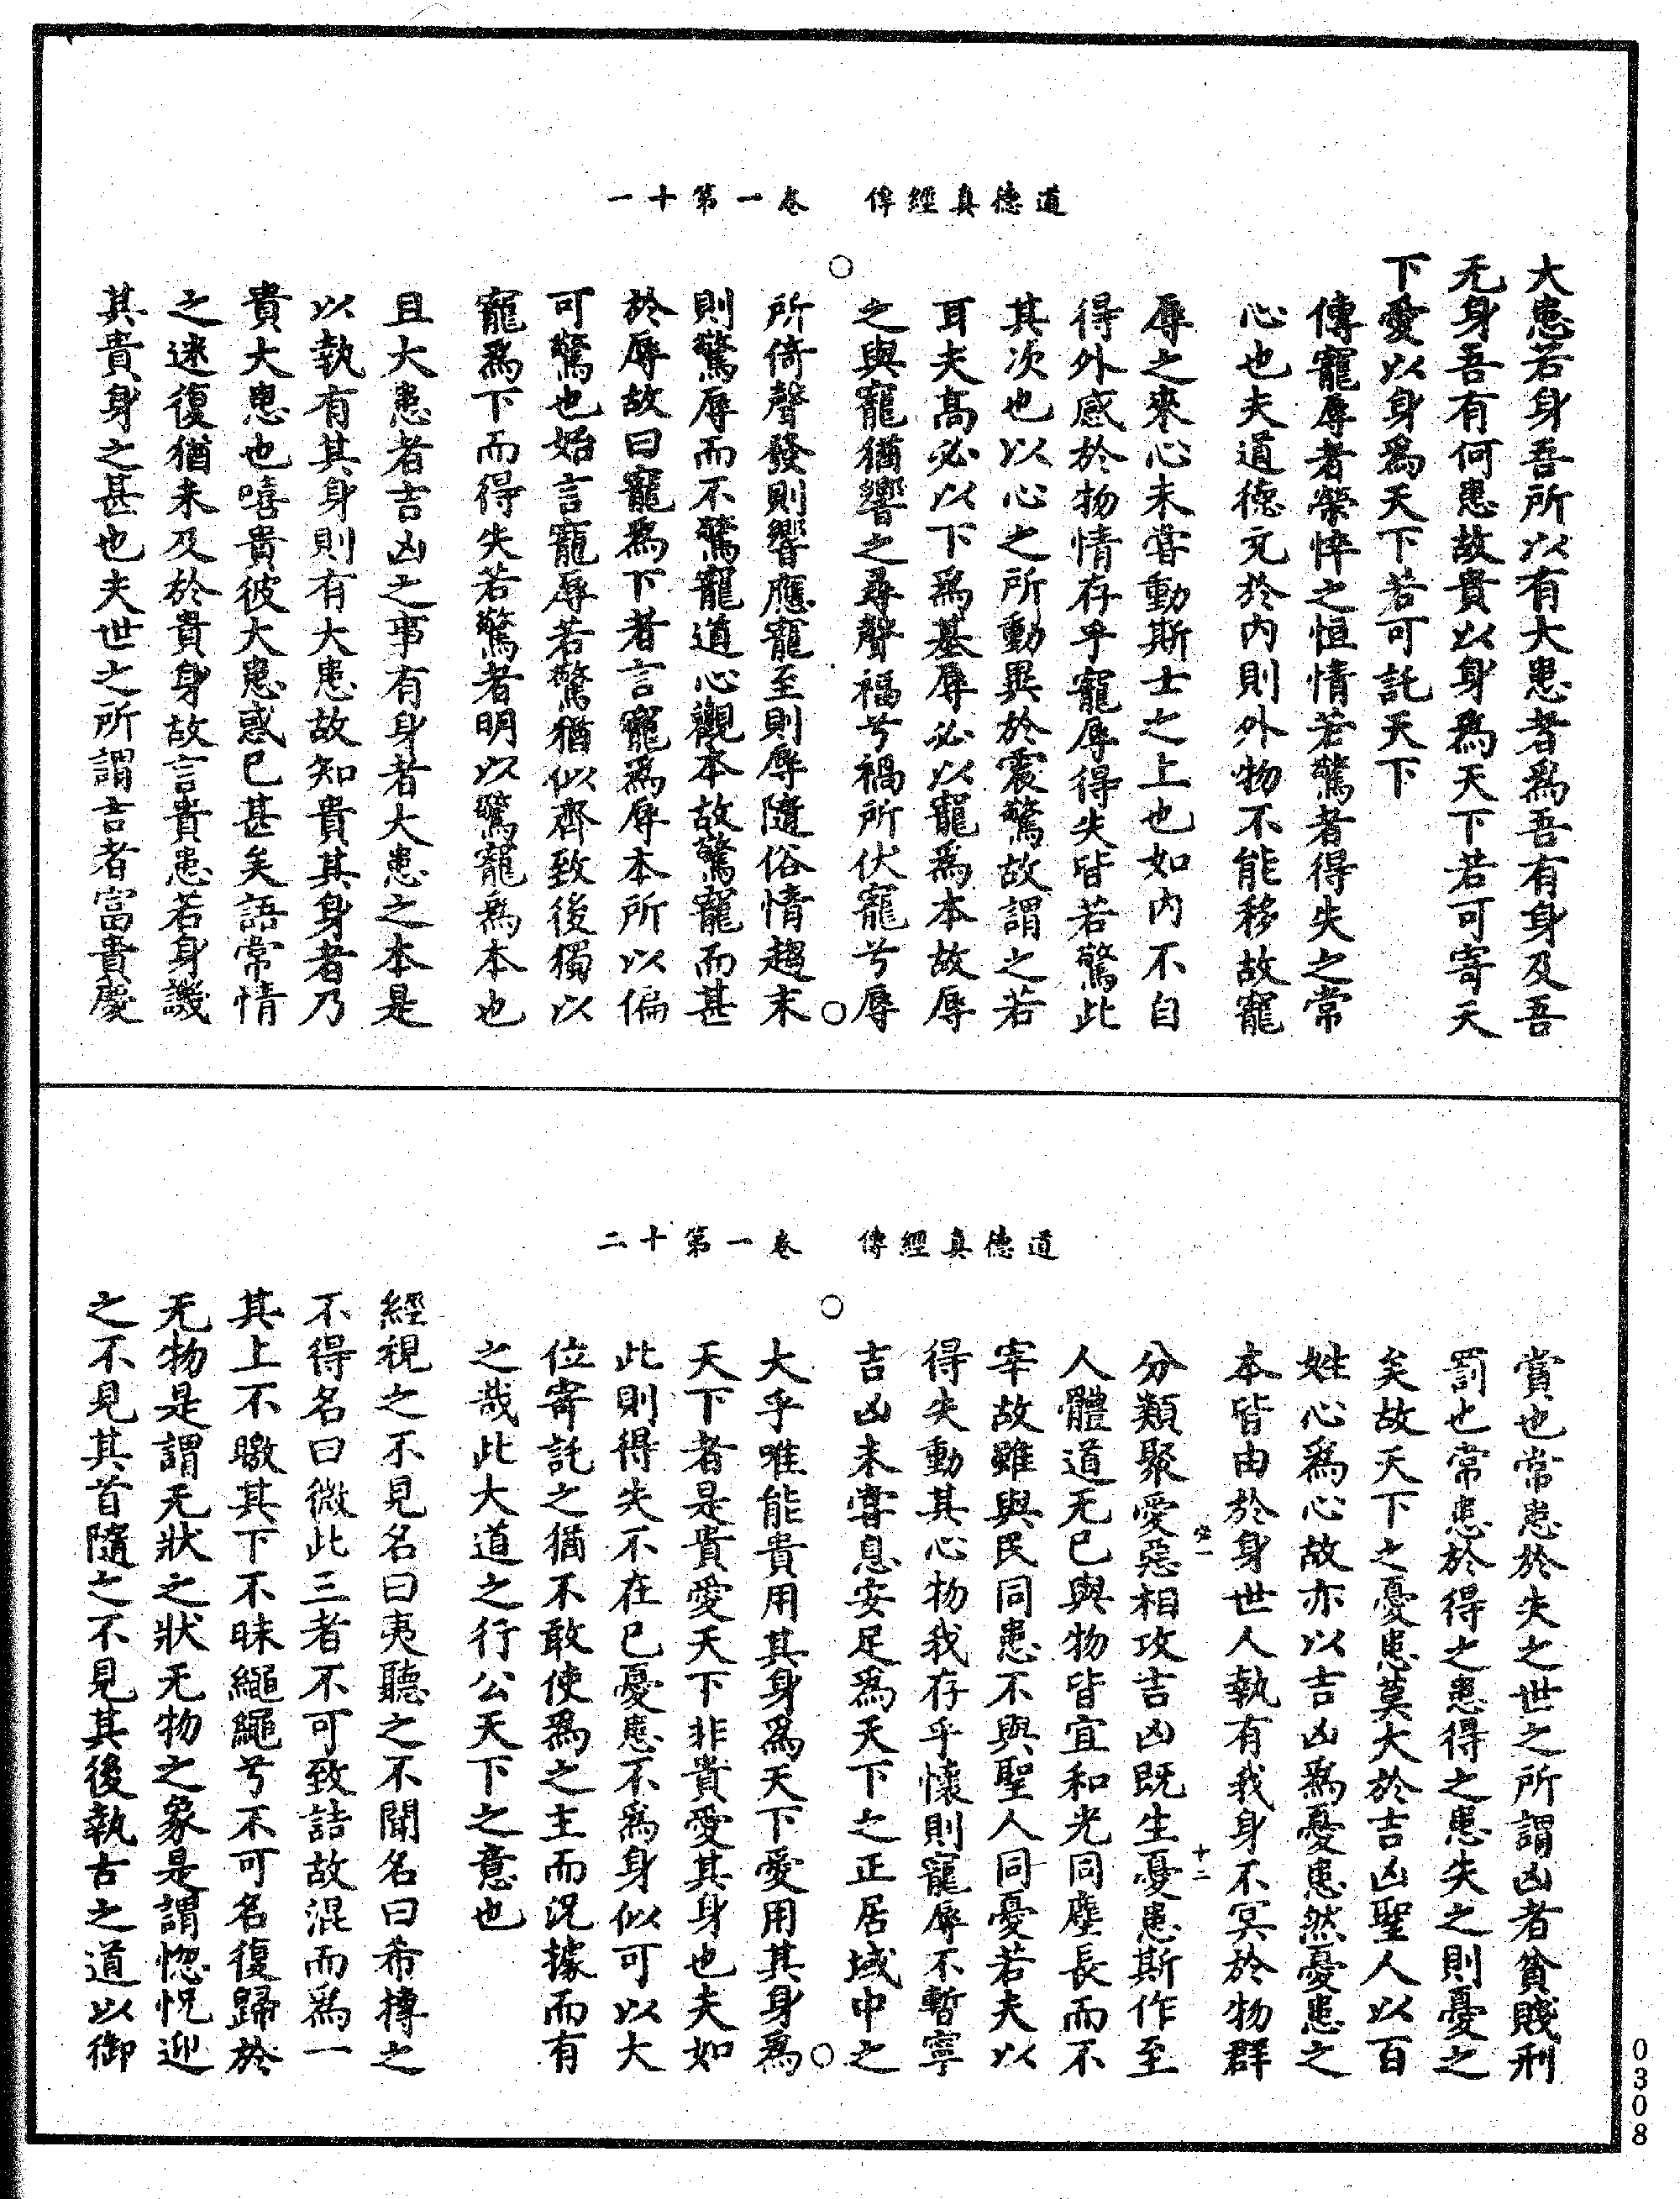 道德真經傳 卷一第十一
大患若身吾所以有大患者為吾有身及吾
无身吾有何患故貴以身為天下若可寄天
下愛以身為天下若可託天下
傳寵辱者榮悴之恒情若驚者得失之常
心也夫道德充於內則外物不能移故寵
辱之來心未嘗動斯士之上也如內不自
得外感於物情存乎寵辱得失皆若驚此
其次也以心之所動異於震驚故謂之若
耳夫高必以下為基辱必以寵為本故辱
之與寵猶響之尋聲福兮禍所伏寵兮辱
所倚聲發則響應寵至則辱隨俗情趨末
則驚辱而不驚寵道心觀本故驚寵而甚
於辱故曰寵為下者言寵為辱本所以偏
可驚也始言寵辱若驚猶似齊致後獨以
寵為下而得失若驚者明以驚寵為本也
且大患者吉凶之事有身者大患之本是
以執有其身則有大患故知貴其身者乃
貴大患也嘻貴彼大患惑已甚矣語常情
之迷復猶未及於貴身故言貴患若身譏
其貴身之甚也夫世之所謂吉者富貴慶
道德真經傳 卷一第十二
賞也常患於失之世之所謂凶者貧賤刑
罰也常患於得之患得之患失之則憂之
矣故天下之憂患莫大於吉凶聖人以百
姓心為心故亦以吉凶為憂患然憂患之
本皆由於身世人執有我身不冥於物群
十二
分類聚愛惡相攻吉凶既生憂患斯作至
人體道无已與物皆宜和光同塵長而不
宰故雖與民同患不與聖人同憂若夫以
得失動其心物我存乎懷則寵辱不暫寧
吉凶未嘗息安足為天下之正居域中之
大乎唯能貴用其身為天下愛用其身為
天下者是貴愛天下非貴愛其身也夫如
此則得失不在已憂患不為身似可以大
位寄託之猶不敢使為之主而況據而有
之哉此大道之行公天下之意也
經視之不見名曰夷聽之不聞名曰希摶之
不得名曰微此三者不可致詰故混而為一
其上不皦其下不昧繩繩兮不可名復歸於
无物是謂无狀之狀无物之象是謂惚怳迎
之不見其首隨之不見其後執古之道以御
0308